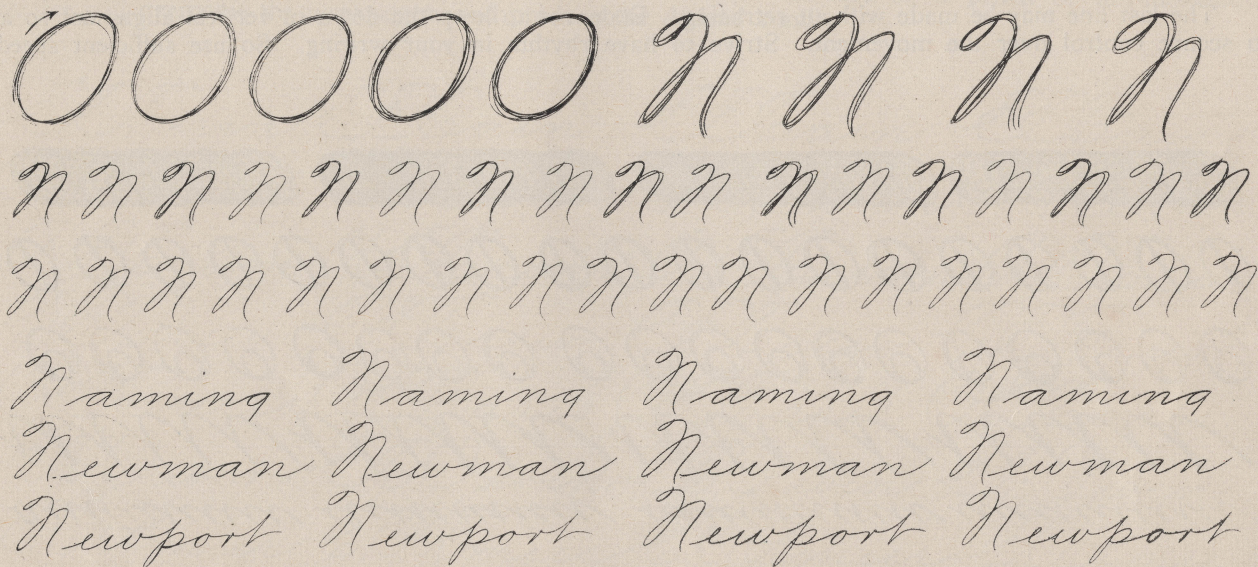 O O O O O N N N N
N N N N N N N N N N N N N N N N N
N N N N N N N N N N N N N N N N N N
Naming Naming Naming Naming
Newman Newman Newman Newman
Newport Newport Newport Newport